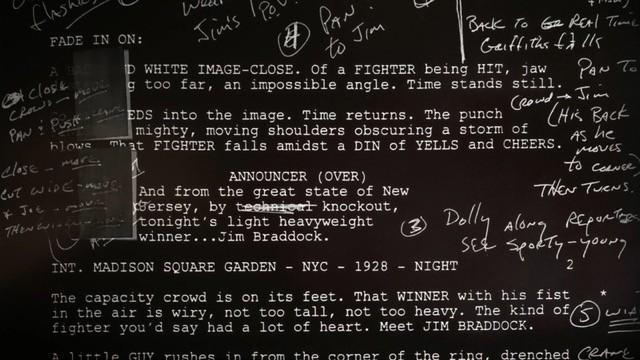 flashes
Jim's POV
4 PAN
to Jim
BACK TO REAL Time
Griffiths falls
FADE IN ON:
D WHITE IMAGE-CLOSE. Of a FIGHTER being HIT, jaw
g too far, an impossible angle. Time stands still.
EDS into the image. Time returns. The punch
mighty, moving shoulders obscuring a storm of
blows. That FIGHTER falls amidst a DIN of YELLS and CHEERS.
CLOSE
CROWD - MOVE
PAN
CLOSE - MOVE
CUT WIDE - MOVE
& JOE - MOVE
PAN TO
Crowd → Jim
(His BACK
AS he
moves
to corner)
THEN TURNS.
ANNOUNCER (OVER)
And from the great state of New
Jersey, by technical knockout,
tonight's light heavyweight
winner...Jim Braddock.
3 Dolly ALONG REPORTERS
SEE SPORTY-YOUNG
2
INT. MADISON SQUARE GARDEN - NYC - 1928 - NIGHT
The capacity crowd is on its feet. That WINNER with his fist *
in the air is wiry, not too tall, not too heavy. The kind of
fighter you'd say had a lot of heart. Meet JIM BRADDOCK.
5
A little GUY rushes in from the corner of the ring, drenched
CRANE